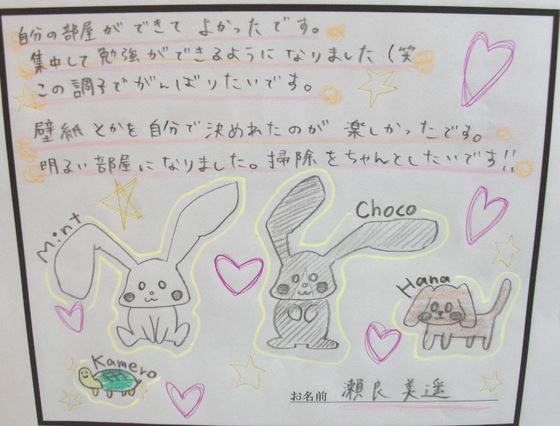 自分の部屋ができて よかったです。
集中して勉強ができるようになりました(笑
この調子でがんばりたいです。
壁紙とかを自分で決めれたのが 楽しかったです。
明るい部屋になりました。掃除をちゃんとしたいです!!
Mint
Choco
Hana
Kamero
お名前 瀬良 美遥